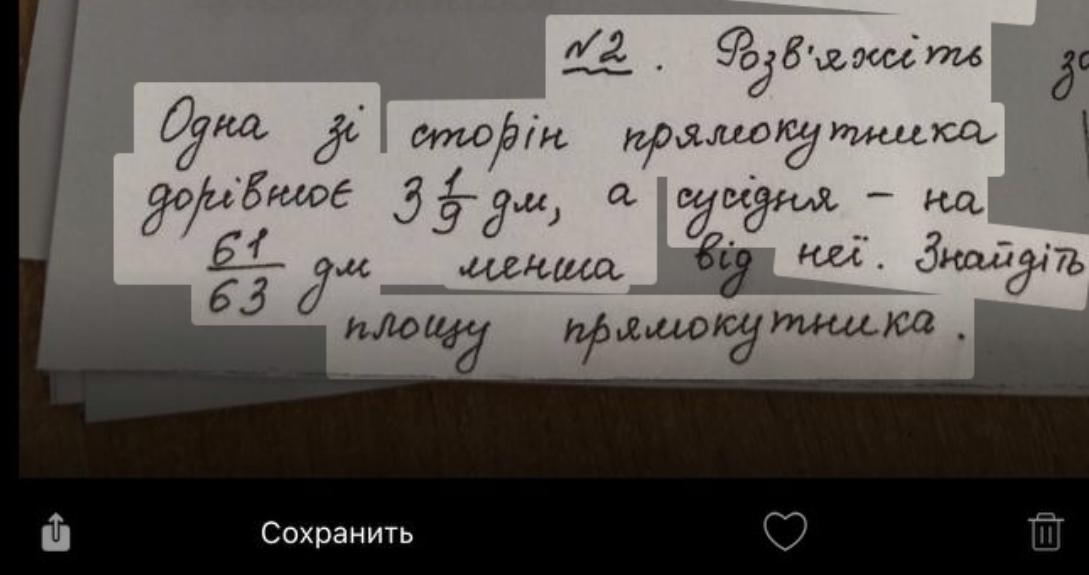 №2. Розв'яжіть
Одна зі сторін прямокутника
дорівнює 3 1/9 дм, а сусідня – на
61/63 дм менша від неї. Знайдіть
площу прямокутника.
Сохранить